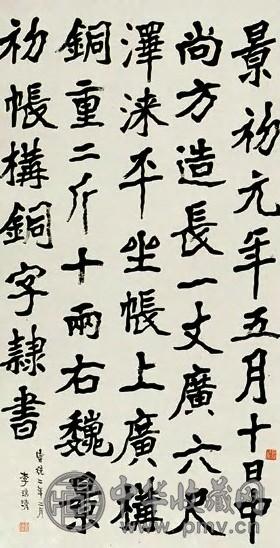 景初元年五月十日中
尚方造長一丈廣六尺
澤涞平坐帳上廣構
銅重二斤十兩右魏景
初帳構銅字隸書
宣統二年二月
李瑞清
中华收藏网
www.pmv.cn